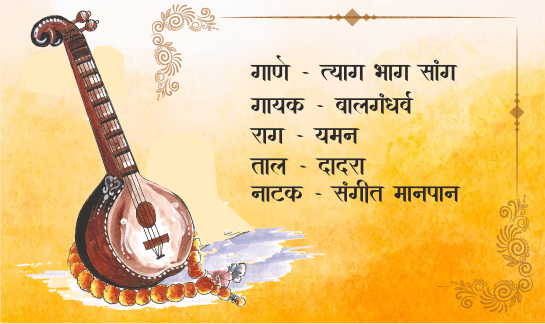 गाणे - त्याग भाग सांग
गायक - वालगंधर्व
राग - यमन
ताल - दादरा
नाटक - संगीत मानपान